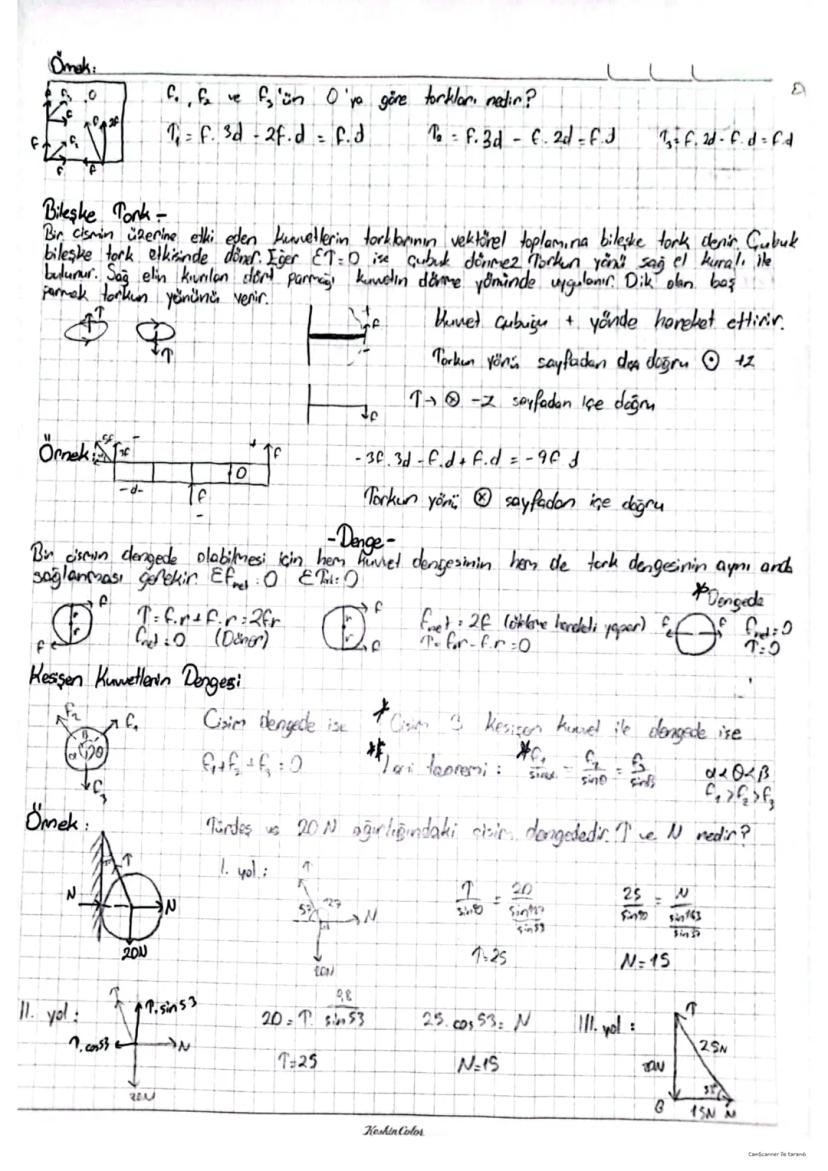 Örnek:
F₁, F₂ ve F₃'ün O'ya göre torkları nedir?
T₁ = F. 3d - 2F. d = F. d T₂ = F. 3d - F. 2d = F. d T₃ = F. 2d - F. d = F. d
Bileşke Tork -
Bir cismin üzerine etki eden kuvvetlerin torklarının vektörel toplamına bileşke tork denir. Çubuk
bileşke tork etkisinde döner. Eğer ΣT=0 ise çubuk dönmez. Torkun yönü sağ el kuralı ile
bulunur. Sağ elin kıvrılan dört parmağı kuvvetin dönme yönünde uygulanır. Dik olan baş
parmak torkun yönünü verir.
Kuvvet çubuğu + yönde hareket ettirir.
Torkun yönü sayfadan dışa doğru ⊙ +z
T → ⊗ -z sayfadan içe doğru
Örnek:
-3F. 3d - F. d + F. d = -9F d
Torkun yönü ⊗ sayfadan içe doğru
-Denge-
Bir cismin dengede olabilmesi için hem kuvvet dengesinin hem de tork dengesinin aynı anda
sağlanması gerekir. ΣFnet = 0
*Dengede
T = F.r + F.r = 2Fr
Fnet = 0 (Döner)
Fnet = 2F
T = F.r - F.r = 0
Fnet = 0
T = 0
Kesişen Kuvvetlerin Dengesi
Cisim dengede ise *Cisim 3 kesişen kuvvet ile dengede ise
F₁ + F₂ + F₃ = 0 ** Lami teoremi: *F₁/sinα = F₂/sinθ = F₃/sinβ α<θ<β
F₁>F₂>F₃
Örnek:
Türdeş ve 20 N ağırlığındaki cisim dengededir. T ve N nedir?
I. yol:
T/sin90 = 20/sin127 sin53 25/sin90 = N/sin143 sin37
T=25 N=15
20N
II. yol:
T.sin53
T.cos53 N
20N
20 = T. sin53 25. cos53 = N
T=25 N=15
III. yol:
T
25N
15N N
Keskin Color
CamScanner ile tarandı